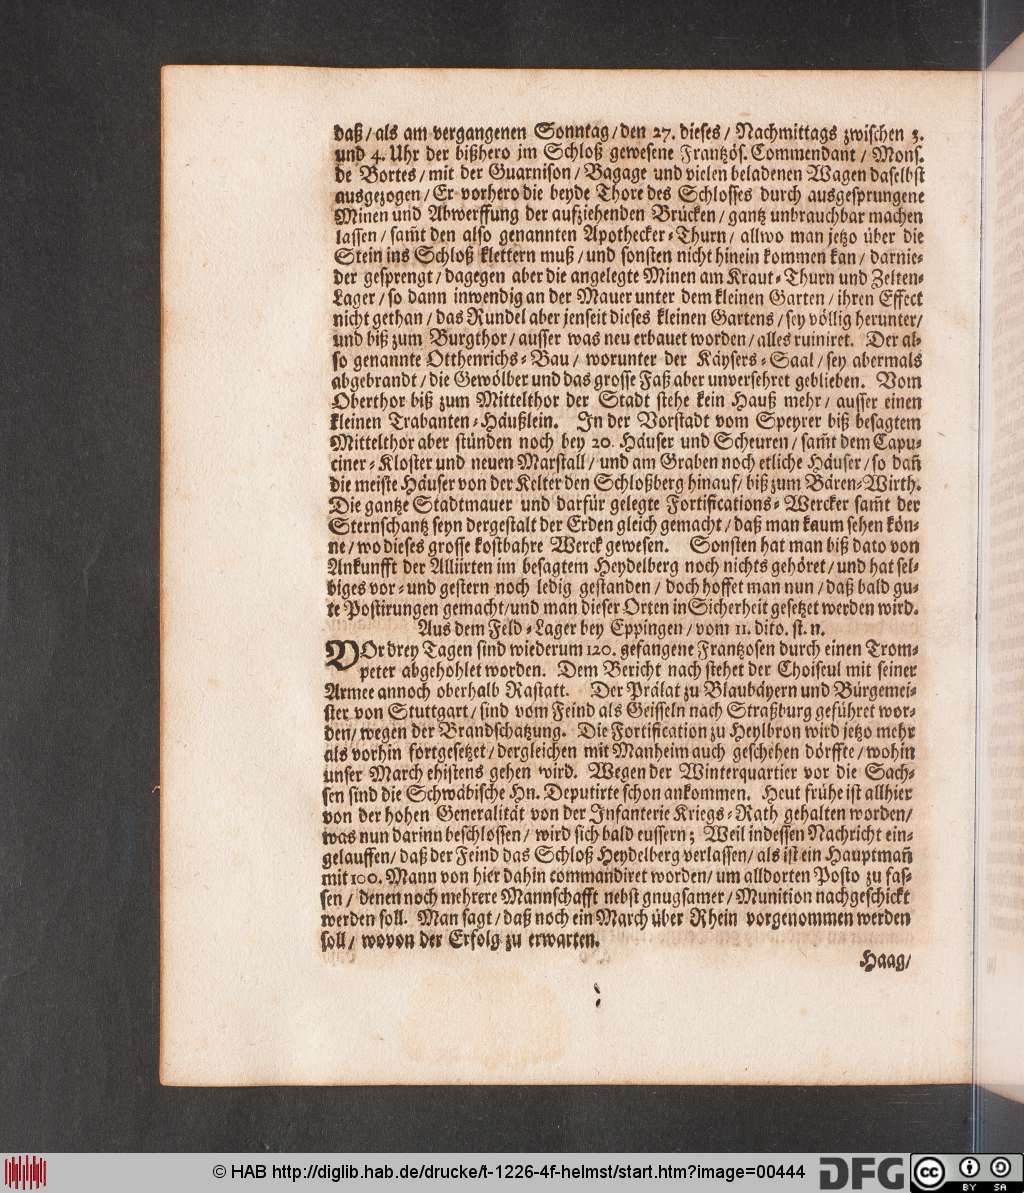 daß / als am vergangenen Sonntag / den 27. dieses / Nachmittags zwischen 3.
und 4. Uhr der bißhero im Schloß gewesene Frantzös. Commendant / Mons.
de Bortes / mit der Guarnison / Bagage und vielen beladenen Wagen daselbst
ausgezogen / Er vorhero die beyde Thore des Schlosses durch ausgesprungene
Minen und Abwerffung der aufziehenden Brücken / gantz unbrauchbar machen
lassen / sam̃t den also genannten Apothecker-Thurn / allwo man jetzo über die
Stein ins Schloß klettern muß / und sonsten nicht hinein kommen kan / darnie-
der gesprengt / dagegen aber die angelegte Minen am Kraut-Thurn und Zelten-
Lager / so dann inwendig an der Mauer unter dem kleinen Garten / ihren Effect
nicht gethan / das Rundel aber jenseit dieses kleinen Gartens / sey völlig herunter /
und biß zum Burgthor / ausser was neu erbauet worden / alles ruiniret. Der al-
so genannte Otthenrichs-Bau / worunter der Käysers-Saal / sey abermals
abgebrandt / die Gewölber und das grosse Faß aber unversehret geblieben. Vom
Oberthor biß zum Mittelthor der Stadt stehe kein Hauß mehr / ausser einen
kleinen Trabanten-Häußlein. In der Vorstadt vom Speyrer biß besagtem
Mittelthor aber stünden noch bey 20. Häuser und Scheuren / sam̃t dem Capu-
ciner-Kloster und neuen Marstall / und am Graben noch etliche Häuser / so dañ
die meiste Häuser von der Kelter den Schloßberg hinauf / biß zum Bären-Wirth.
Die gantze Stadtmauer und darfür gelegte Fortifications-Wercker sam̃t der
Sternschantz seyn dergestalt der Erden gleich gemacht / daß man kaum sehen kön-
ne / wo dieses grosse kostbahre Werck gewesen. Sonsten hat man biß dato von
Ankunfft der Alliirten im besagtem Heydelberg noch nichts gehöret / und hat sel-
biges vor- und gestern noch ledig gestanden / doch hoffet man nun / daß bald gu-
te Postirungen gemacht / und man dieser Orten in Sicherheit gesetzet werden wird.
Aus dem Feld-Lager bey Eppingen / vom 11. dito. st. n.
VOr drey Tagen sind wiederum 120. gefangene Frantzosen durch einen Trom-
peter abgehohlet worden. Dem Bericht nach stehet der Choiseul mit seiner
Armee annoch oberhalb Rastatt. Der Prälat zu Blaubäyern und Bürgemei-
ster von Stuttgart / sind vom Feind als Geisseln nach Straßburg geführet wor-
den / wegen der Brandschatzung. Die Fortification zu Heylbron wird jetzo mehr
als vorhin fortgesetzet / dergleichen mit Manheim auch geschehen dörffte / wohin
unser March ehistens gehen wird. Wegen der Winterquartier vor die Sach-
sen sind die Schwäbische Hn. Deputirte schon ankommen. Heut frühe ist allhier
von der hohen Generalität von der Infanterie Kriegs-Rath gehalten worden /
was nun darinn beschlossen / wird sich bald eussern; Weil indessen Nachricht ein-
gelauffen / daß der Feind das Schloß Heydelberg verlassen / als ist ein Hauptmañ
mit 100. Mann von hier dahin commandiret worden / um alldorten Posto zu fas-
sen / denen noch mehrere Mannschafft nebst gnugsamer / Munition nachgeschickt
werden soll. Man sagt / daß noch ein March über Rhein vorgenommen werden
soll / wovon der Erfolg zu erwarten.
Haag /
© HAB http://diglib.hab.de/drucke/t-1226-4f-helmst/start.htm?image=00444
DFG
cc BY SA